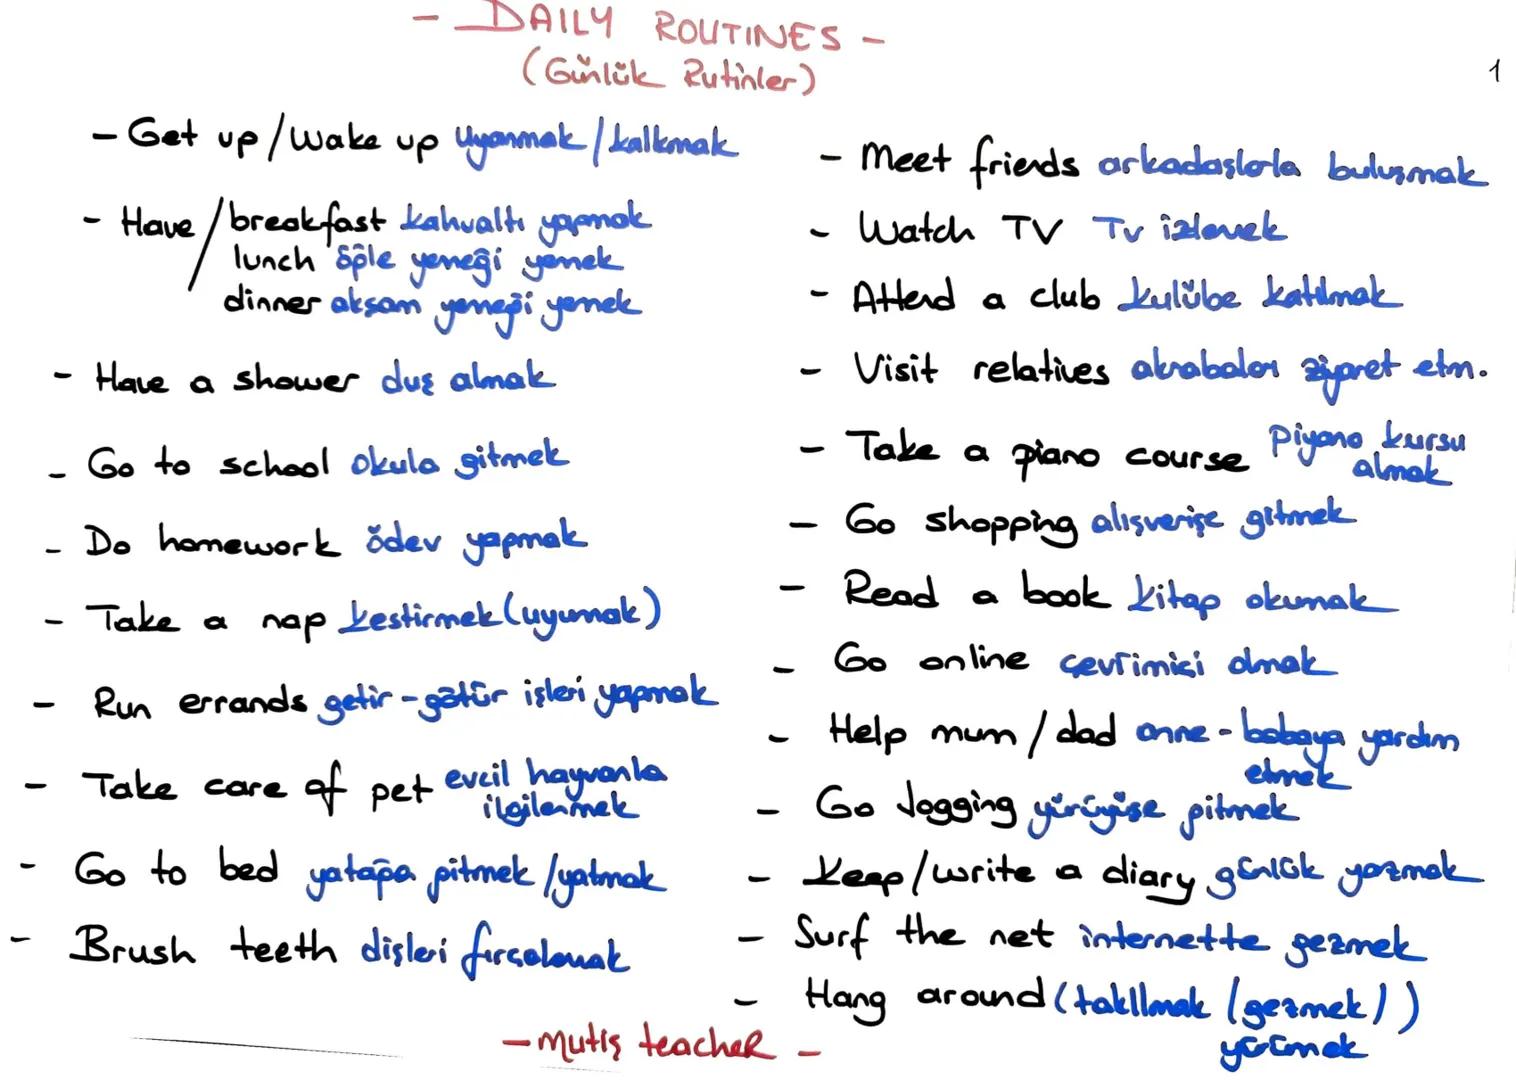 - DAILY ROUTINES -
(Günlük Rutinler)
1
- Get up / Wake up uyanmak / kalkmak
- Have / breakfast kahvaltı yapmak
lunch öğle yemeği yemek
dinner akşam yemeği yemek
- Have a shower duş almak
- Go to school okula gitmek
- Do homework ödev yapmak
- Take a nap kestirmek (uyumak)
- Run errands getir - götür işleri yapmak
- Take care of pet evcil hayvanla
ilgilenmek
- Go to bed yatağa gitmek / yatmak
- Brush teeth dişleri fırçalamak
- Meet friends arkadaşlarla buluşmak
- Watch TV Tv izlemek
- Attend a club kulübe katılmak
- Visit relatives akrabaları ziyaret etm.
- Take a piano course Piyano kursu
almak
- Go shopping alışverişe gitmek
- Read a book kitap okumak
- Go online çevrimiçi olmak
- Help mum / dad anne - babaya yardım
etmek
- Go Jogging yürüyüşe gitmek
- Keep / write a diary günlük yazmak
- Surf the net internette gezmek
- Hang around (takılmak (gezmek) )
yürümek
- mutiş teacher -